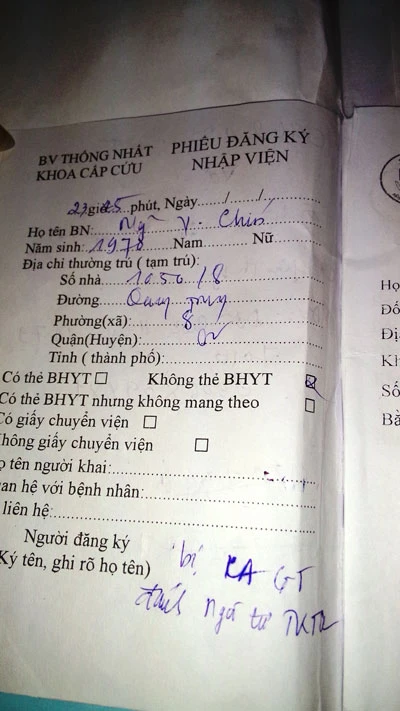 BV THỐNG NHẤT
KHOA CẤP CỨU
PHIẾU ĐĂNG KÝ
NHẬP VIỆN
giờ 25 phút, Ngày....../....../......
Họ tên BN: V.
Năm sinh: 1978 Nam Nữ
Địa chỉ thường trú ( tạm trú):
Số nhà 1050/8
Đường
Phường(xã): 8
Quận(Huyện):
Tỉnh ( thành phố):
Có thẻ BHYT ☐ Không thẻ BHYT ☒
Có thẻ BHYT nhưng không mang theo ☐
Có giấy chuyển viện ☐
hông giấy chuyển viện ☐
ọ tên người khai:
an hệ với bệnh nhân:
liên hệ:
Người đăng ký
Ký tên, ghi rõ họ tên)
bị CA GT
đánh ngã tư
Họ
Số